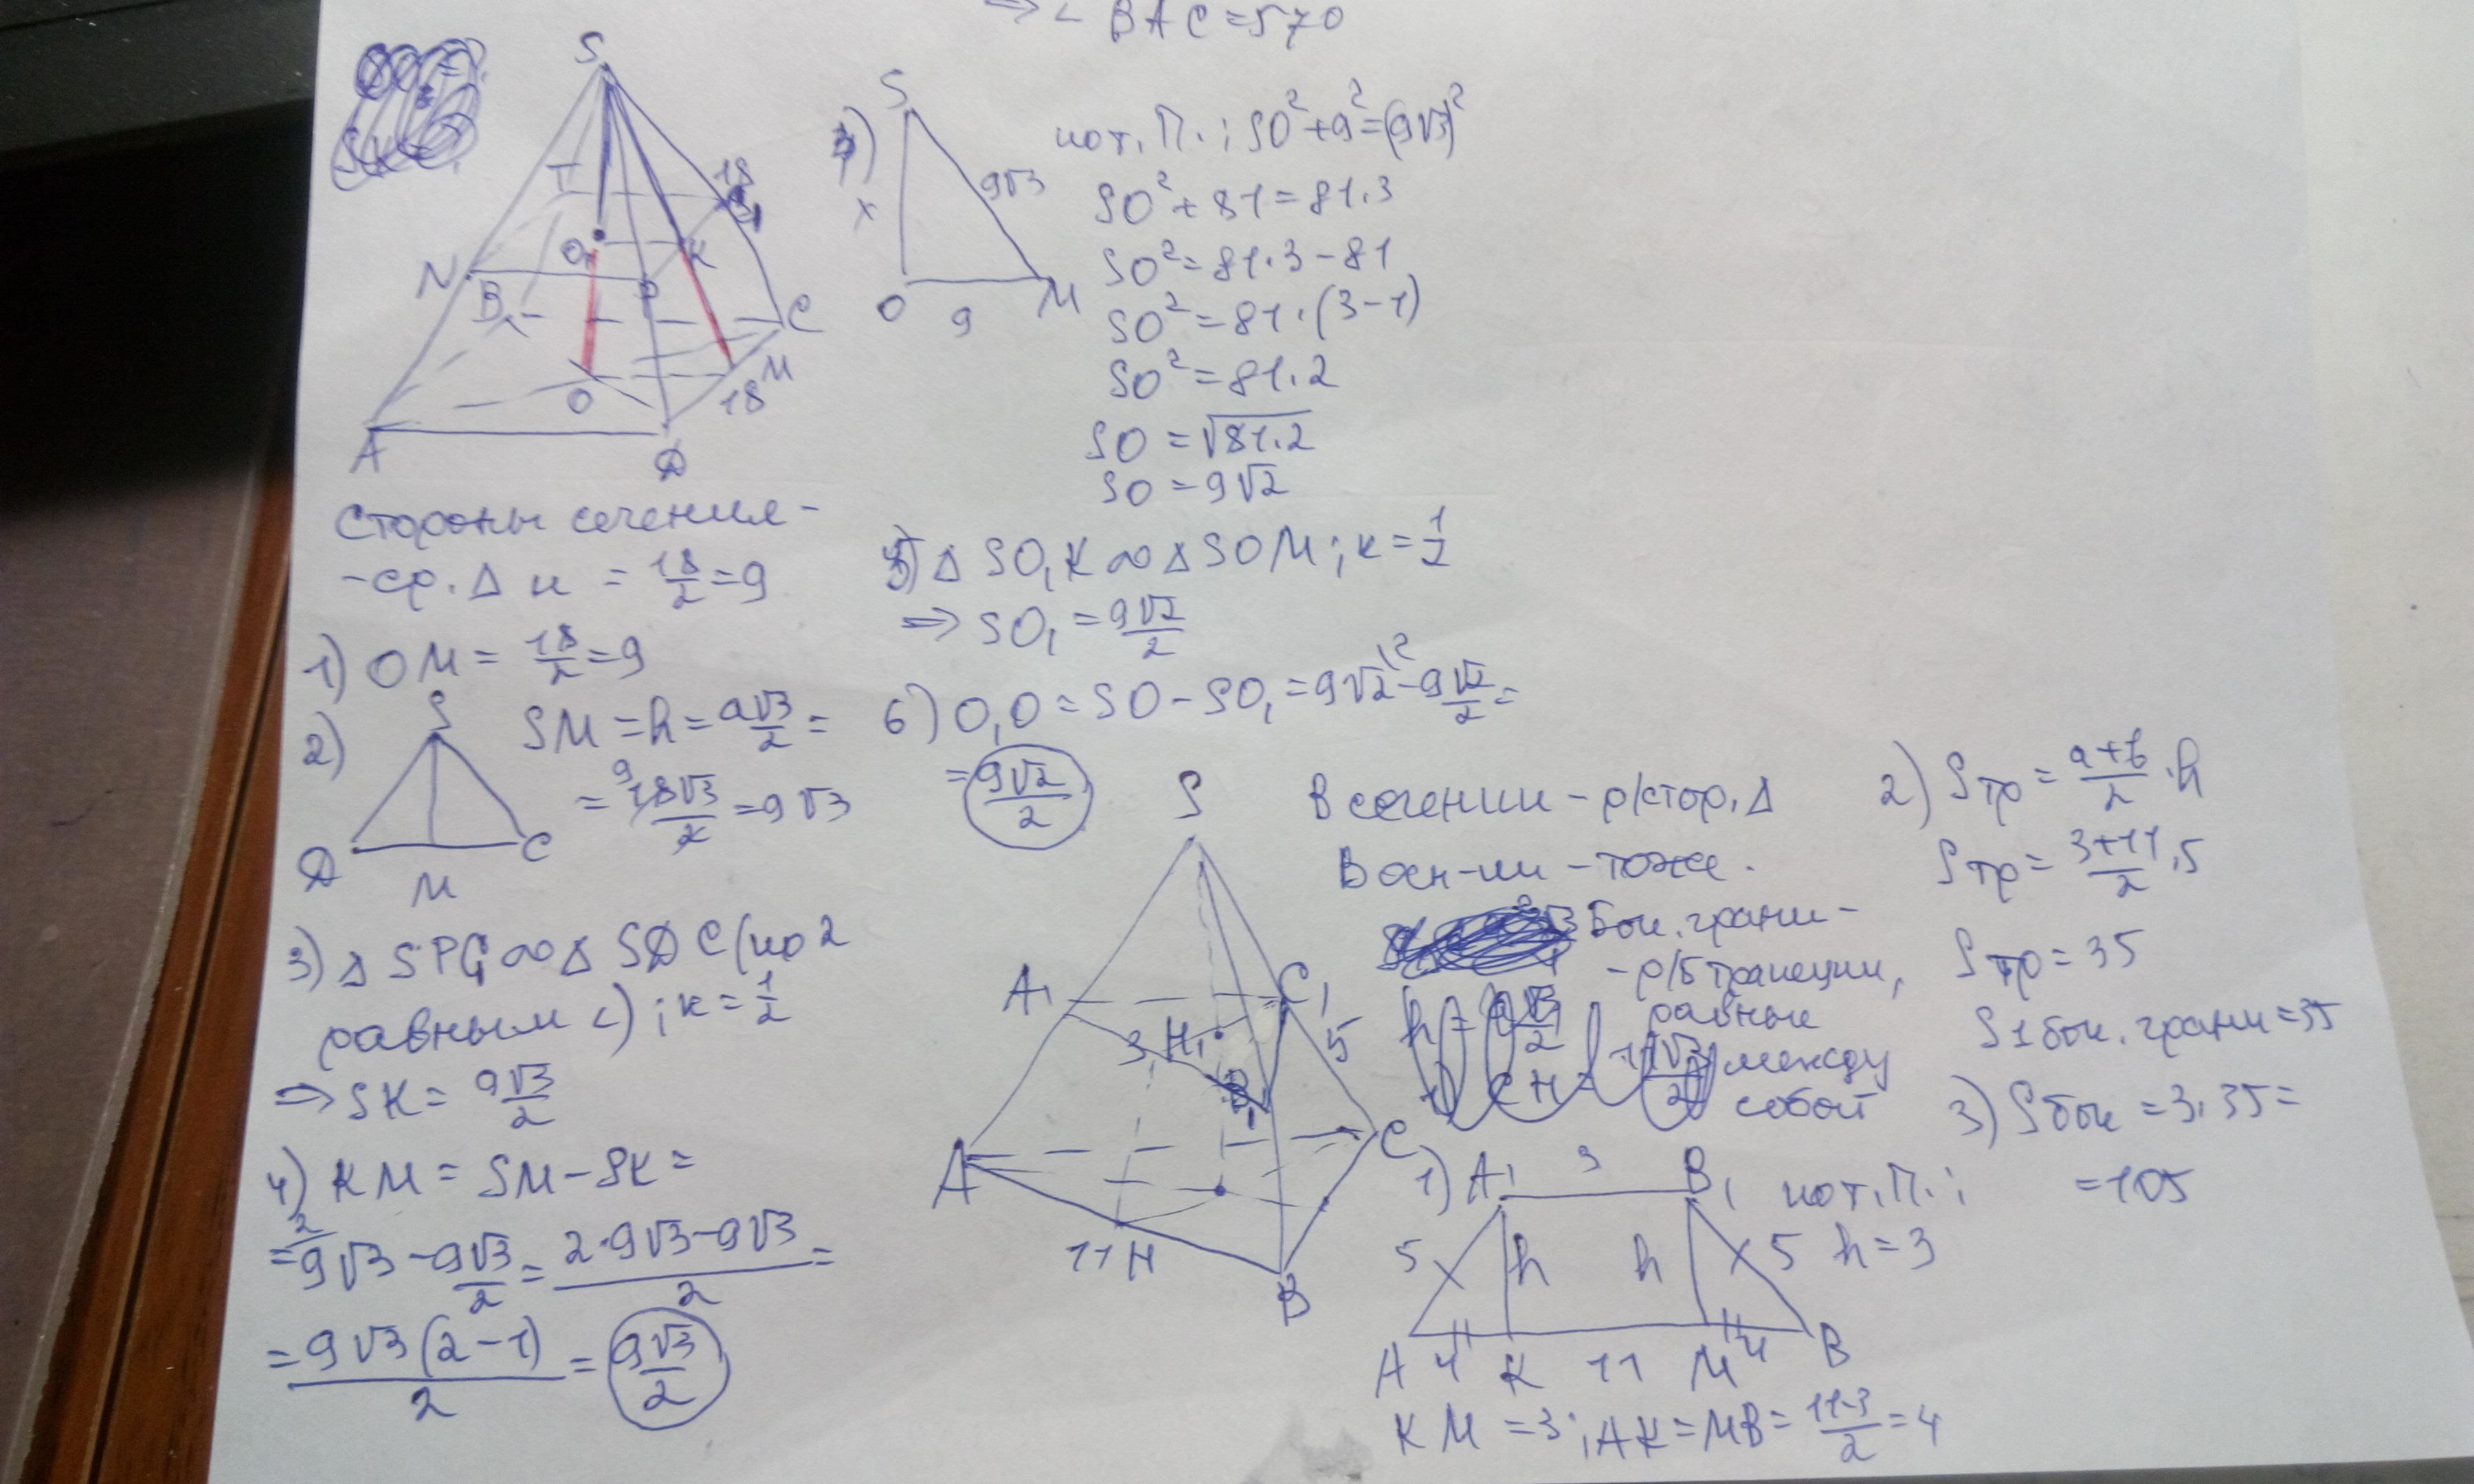 ⇒ ∠ BAC = 570
S
T
18
C₁
N
O₁
K
P
B
C
M
O
18
A
D
Стороны сечения -
- ср. Δ и = 18/2 = 9
1) OM = 18/2 = 9
2)
S
D
M
C
SM = h = a√3/2 =
= 18√3/2 = 9√3
9
3) Δ SPC₁ ∞ Δ SDC (по 2
равным ∠); k = 1/2
⇒ SK = 9√3/2
4) KM = SM - SK =
= 9√3 - 9√3/2 = (2·9√3 - 9√3)/2 =
= 9√3(2-1)/2 = 9√3/2
S
x
9√3
O
9
M
по т. П.: SO² + 9² = (9√3)²
SO² + 81 = 81·3
SO² = 81·3 - 81
SO² = 81·(3-1)
SO² = 81·2
SO = √81·2
SO = 9√2
5) Δ SO₁K ∞ Δ SOM; k = 1/2
⇒ SO₁ = 9√2/2
6) O₁O = SO - SO₁ = 9√2 - 9√2/2 =
= 9√2/2
S
A₁
C₁
3
H₁
5
B₁
A
C
11
H
B
В сечении - р/стор. Δ
В осн-ии - тоже.
Бок. грани -
- р/б трапеции,
равные
между
собой
1) A₁
3
B₁
5
h
h
5
A
4
K
11
M
4
B
по т. П.:
h = 3
KM = 3; AK = MB = 11-3/2 = 4
2) Sтр = a+b/2 · h
Sтр = 3+11/2 · 5
Sтр = 35
S 1 бок. грани = 35
3) Sбок = 3·35 =
= 105